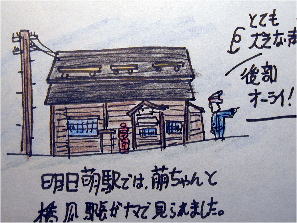 とても
大きな声
後部
オーライ！
明日萌駅では、萌ちゃんと
橋爪駅長がナマで見られました。